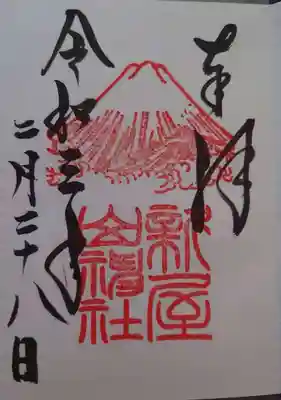 奉拝
新屋
山神社
令和三年
二月二十八日